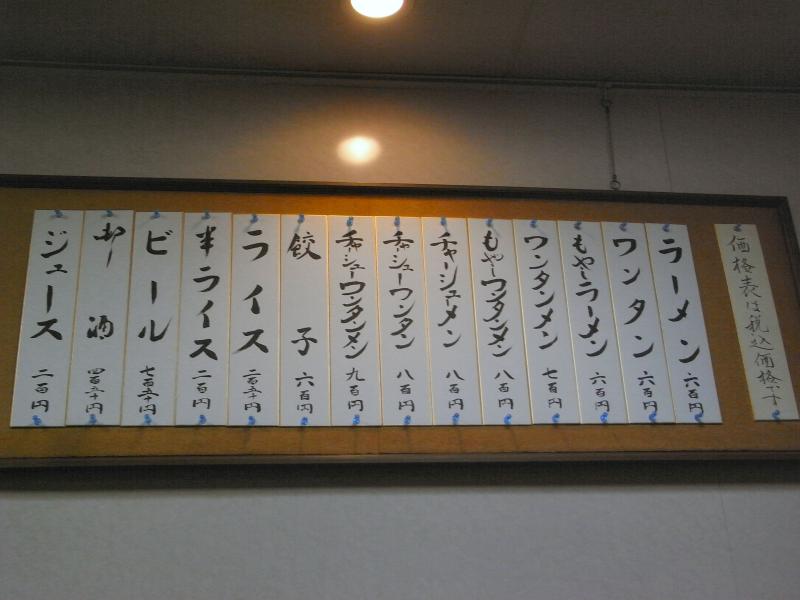 価格表は税込価格です
ラーメン 六百円
ワンタン 六百円
もやしラーメン 六百円
ワンタンメン 七百円
もやしワンタンメン 八百円
チャーシューメン 八百円
チャーシューワンタン 八百円
チャーシューワンタンメン 九百円
餃子 六百円
ライス 二百五十円
半ライス 二百円
ビール 七百五十円
お酒 四百五十円
ジュース 二百円